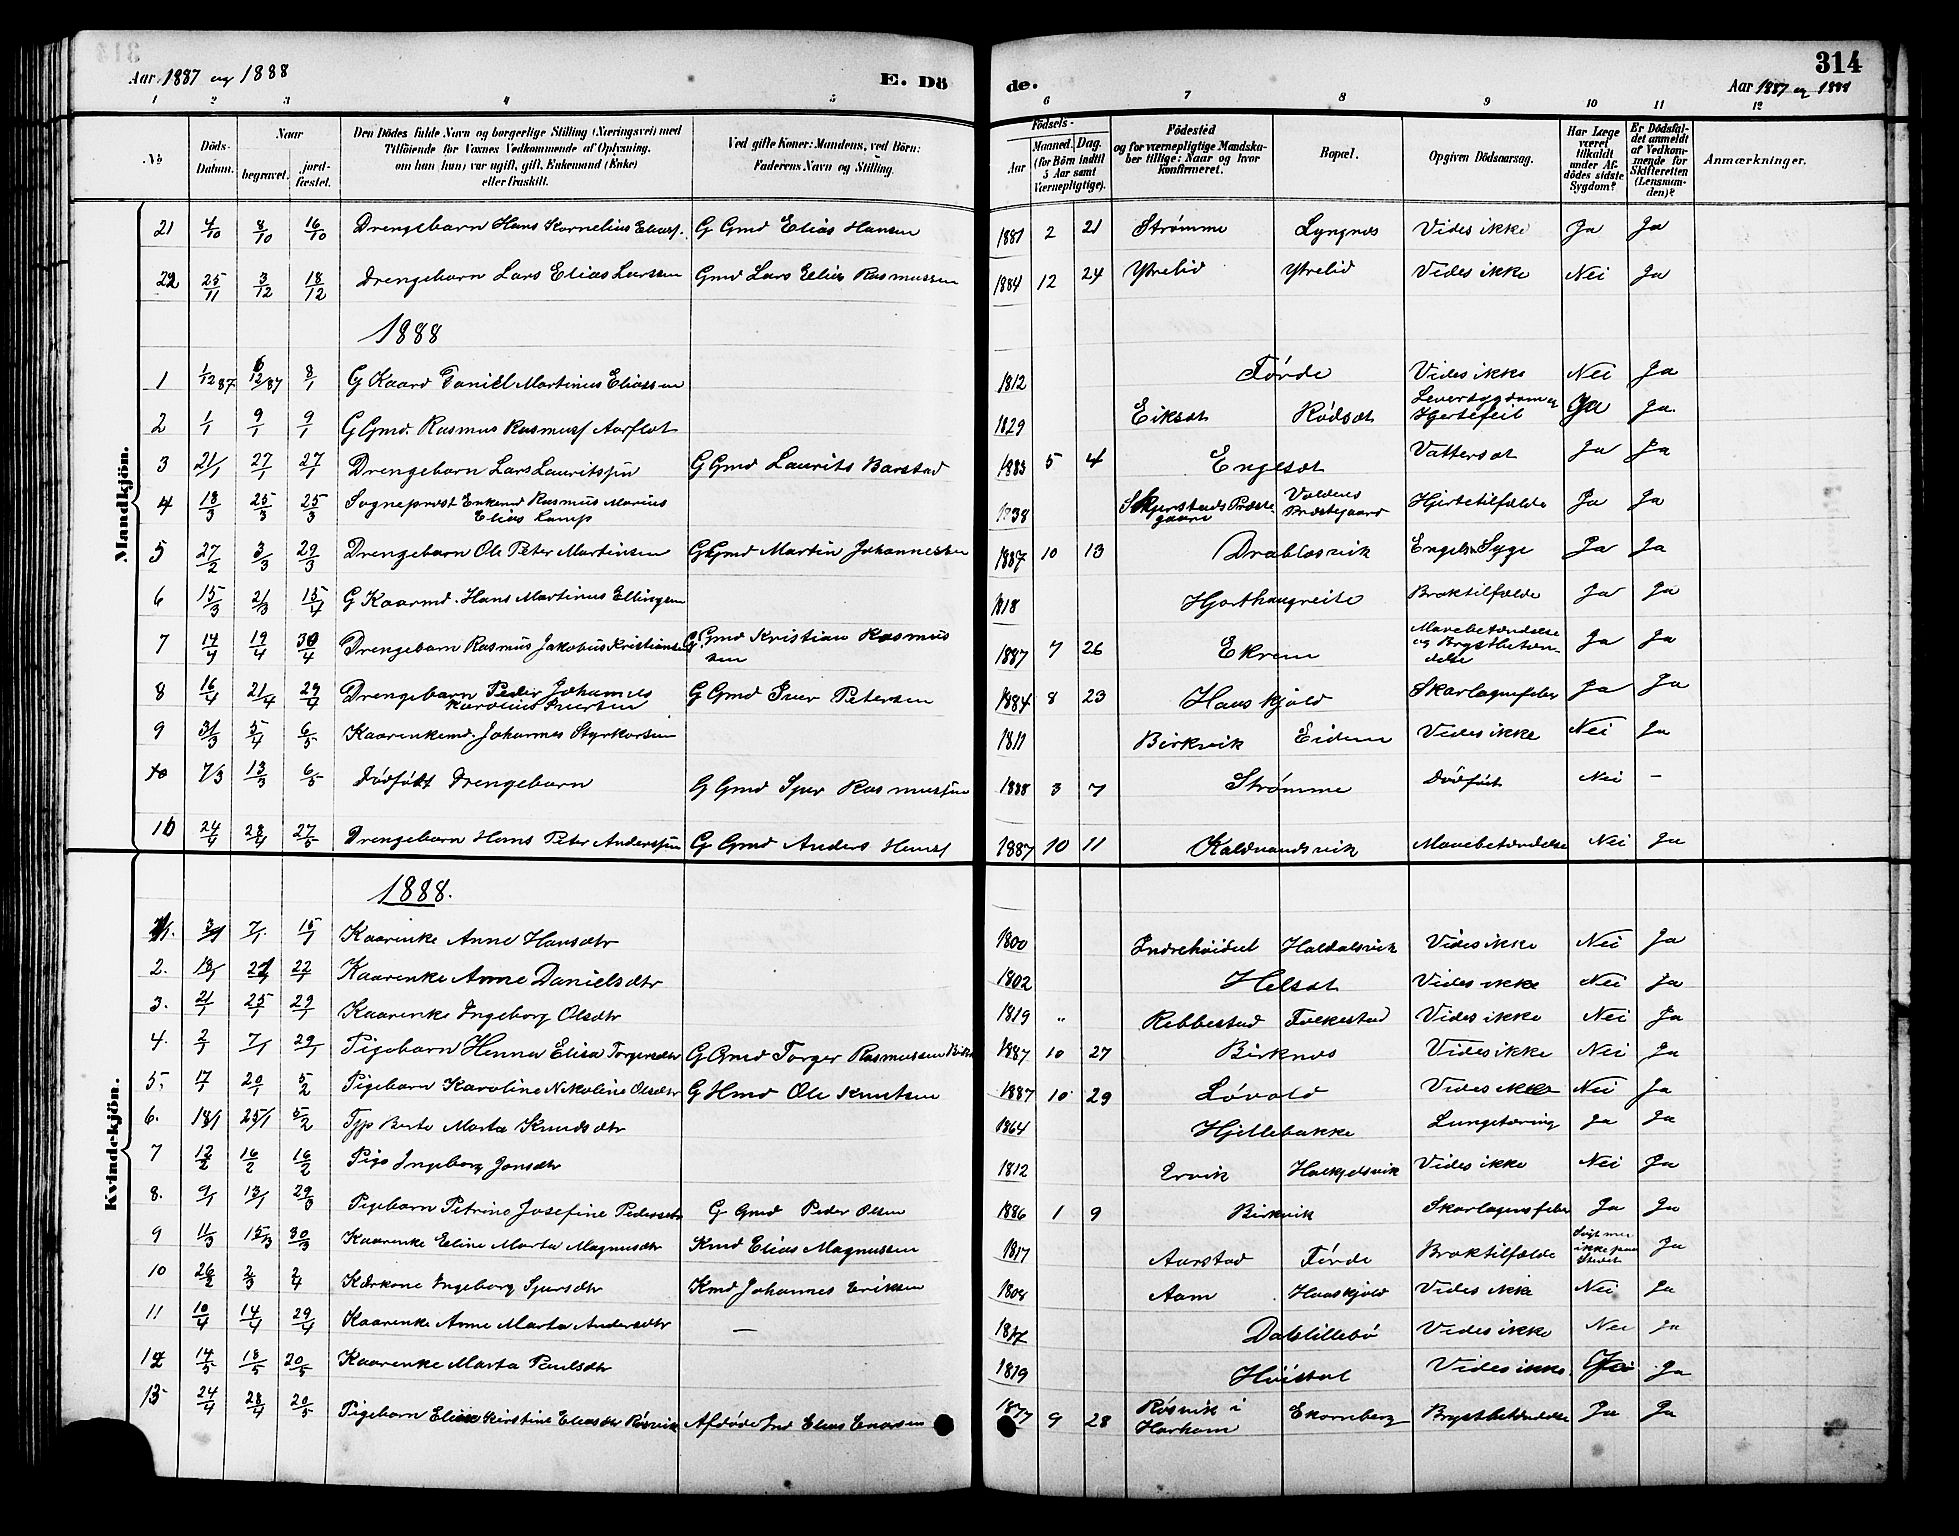 314
Aar 1887 og 1888
E. Dö
de.
Aar 1887 og 1888
1 2 3 4 5 6 7 8 9 10 11 12
No.
Döds-Datum.
Naar
begravet.
jord-fæstet.
Den Dödes fulde Navn og borgerlige Stilling (Næringsvei) med
Tilföiende for Voxnes Vedkommende af Oplysning,
om han (hun) var ugift, gift, Enkemand (Enke)
eller fraskilt.
Ved gifte Koner: Mandens, ved Börn:
Faderens Navn og Stilling.
Födsels-
Aar
Maaned. Dag.
(for Börn indtil
5 Aar samt
Værnepligtige).
Födested
og for værnepligtige Mandska-
ber tillige: Naar og hvor
konfirmeret.
Bopæl.
Opgiven Dödsaarsag.
Har Læge
været
tilkaldt
under Af-
dödes sidste
Sygdom?
Er Dödsfal-
det anmeldt
af Vedkom-
mende for
Skifteretten
(Lensman-
den)?
Anmærkninger.
Mandkjön.
21 4/10 8/10 16/10 Drengebarn Hans Kornelius Eliass. G Gmd Elias Hansen 1887 2 21 Strømme Lyngnes Vides ikke Ja Ja
22 25/11 3/12 18/12 Drengebarn Lars Elias Larssen Gmd Lars Elias Rasmussen 1884 12 24 Ytrelid Ytrelid Vides ikke Nei Ja
1888
1 1/12 87 6/12 87 8/1 G Kaard Daniel Martinus Eliassen 1812 Førde Vides ikke Nei Ja
2 1/1 9/1 9/1 G Gmd. Rasmus Rasmuss Aarflot 1829 Eiksæt Rødsæt Leversygdom og Hjertefeil Ja Ja.
3 21/1 27/1 27/1 Drengebarn Lars Lauritssen G Gmd Laurits Barstad 1883 5 4 Engesæt Vattersot Ja Ja
4 18/3 25/3 25/3 Sogneprest Enkemd Rasmus Marius
Elias Lamp 1838 Skjerstads Præste
gaard Voldens
Præstegaard Hjertetilfælde Ja Ja
5 27/2 3/3 29/3 Drengebarn Ole Peter Martinsen G Gmd Martin Johannessen 1887 10 13 Drabløsvik Engelsk Syge Ja Ja
6 15/3 21/3 15/4 G Kaarmd. Hans Martinus Ellingsen 1818 Hjorthaugreite Broktilfælde Ja Ja
7 14/4 19/4 30/4 Drengebarn Rasmus Jakobus Kristiansen G. Gmd Kristian Rasmus
sen 1887 7 26 Ekrem Mavebetændelse
og Brystbetæn-
delse Ja Ja
8 16/4 21/4 29/4 Drengebarn Peder Johannes
Karolius Iversen G Gmd Iver Petersen 1884 8 23 Hauskjold Skarlagensfeber Ja Ja
9 31/3 5/4 6/5 Kaarenkemd. Johannes Styrkorsen 1811 Birkvik Eidem Vides ikke Nei Ja
10 7/3 13/3 6/5 Dødfødt Drengebarn G Gmd Sjur Rasmussen 1888 3 7 Strømme Dødfødt Nei –
11 24/4 28/4 27/5 Drengebarn Hans Peter Anderssen G Gmd Anders Hanss 1887 10 11 Kaldvandsvik Mavebetændelse Nei Ja
Kvindekjön.
1888.
1. 3/1 7/1 15/1 Kaarenke Anne Hansdtr 1800 Indrehøidal Haldalsvik Vides ikke Nei Ja
2. 18/1 22/1 22/1 Kaarenke Anne Danielsdtr 1802 Helsæt Vides ikke Nei Ja
3. 21/1 25/1 29/1 Kaarenke Ingeborg Olsdtr 1819 „ Rebbestad Folkestad Vides ikke Nei Ja
4. 2/1 7/1 29/1 Pigebarn Henna Elisa Torgersdtr G Gmd Torger Rasmussen 1887 10 27 Birknes Vides ikke Nei Ja
5. 17/1 20/1 5/2 Pigebarn Karoline Nikoline Olsdtr G Hmd Ole Knutsen 1887 10 29 Løvold Vides ikke Nei Ja
6. 18/1 25/1 5/2 Typ Berte Marta Knudsdtr 1864 Hjellebakke Lungetæring Ja Ja
7 12/2 16/2 16/2 Pige Ingeborg Jonsdtr 1812 Ervik Halkjelsvik Vides ikke Nei Ja
8. 9/1 13/1 29/3 Pigebarn Petrine Josefine Pedersdtr G Gmd Peder Olsen 1886 1 9 Birkvik Skarlagensfeber Ja Ja
9 11/3 15/3 30/3 Kaarenke Eline Marta Magnusdtr Kmd Elias Magnussen 1817 Aarstad Førde Broktilfælde Søgt men
ikke paa
Stedet Ja
10 26/2 2/3 2/4 Kårkone Ingeborg Sjursdtr Kmd Johannes Eriksen 1808 Aam Hauskjold Vides ikke Nei Ja
11 10/4 14/4 29/4 Kaarenke Anne Marta Andersdtr – 1817 Dalslillebø Vides ikke Nei Ja
12 14/5 18/5 20/5 Kaarenke Marta Paulsdtr 1819 Høistol Vides ikke. Ja
13 24/4 28/4 20/5 Pigebarn Eline Kirstine Eliasdtr Røsvik Afdøde Ind Elias Enarsen 1877 9 28 Røsvik i
Harham Ekornberg Brystbetændelse Ja Ja